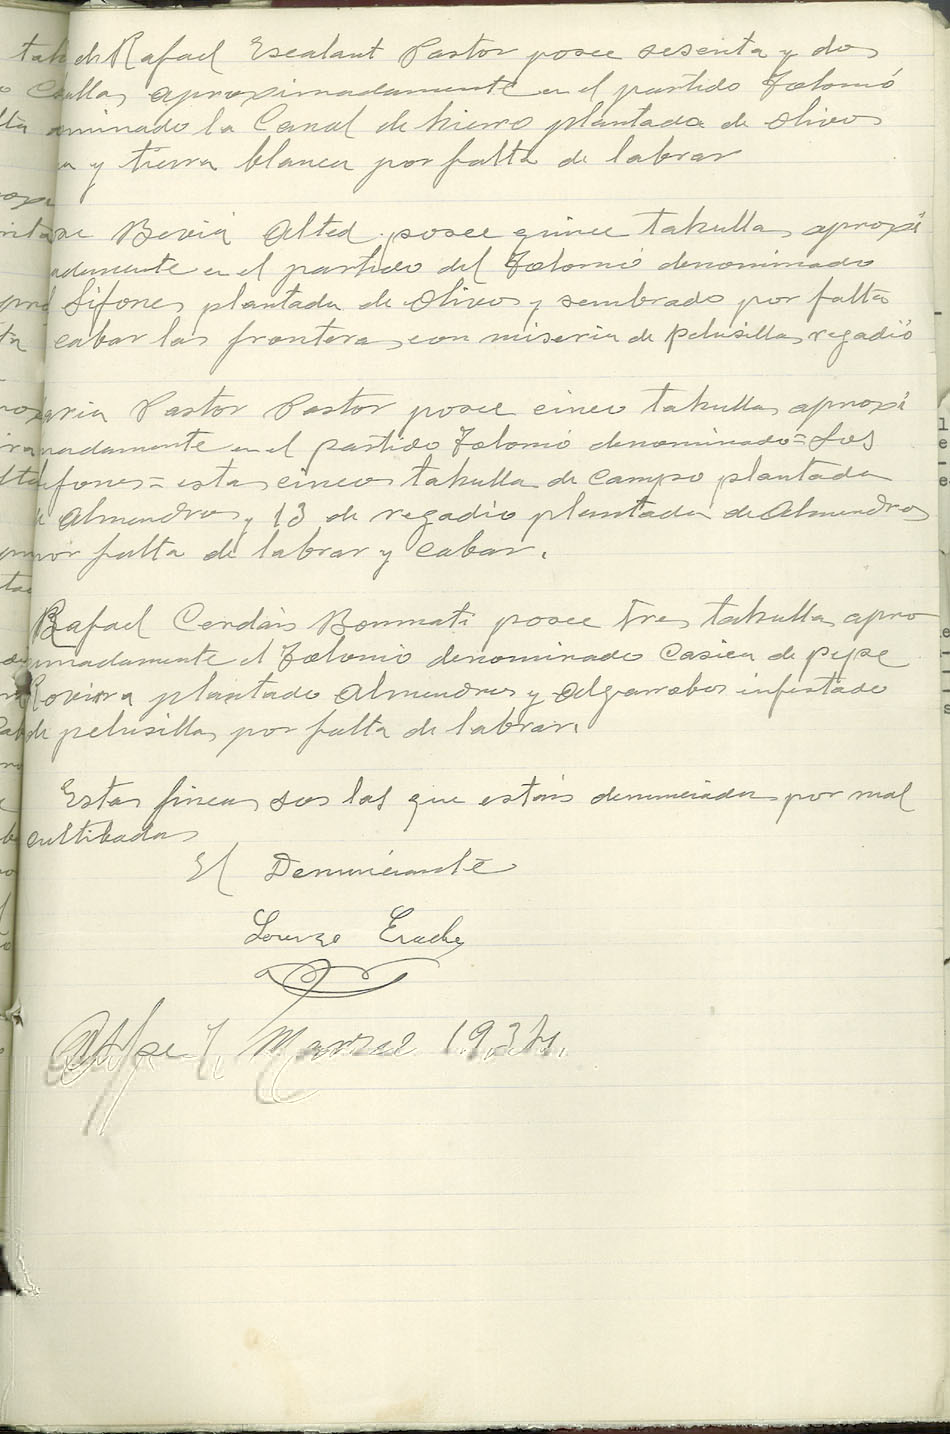 de Rafael Escalant Pastor posee sesenta y dos
aproximadamente en el partido Folomó
aminado la Canal de hierro plantada de Olivos
a y tierra blanca por falta de labrar
Beviá Alted posee quince tahullas aproxi
adamente en el partido del Folomó denominado
Sifones plantada de Olivos y sembrado por falta
cabar las fronteras con miseria de pelusillas regadio
aria Pastor Pastor posee cinco tahullas aproxi
madamente en el partido Folomó denominado = Los
ifones = estas cinco tahulla de campo plantada
de Almendros y 13 de regadio plantada de Almendros
por falta de labrar y cabar.
Rafael Cerdán Bonmati posee tres tahullas apro
imadamente el Folomó denominado Casica de pepe
Rovira plantado Almendros y Algarrobos infestado
de pelusillas por falta de labrar.
Estas fincas son las que están denunciadas por mal
cultibadas
El Denunciante
Lorenzo
Aspe 7 Marzo 1934.